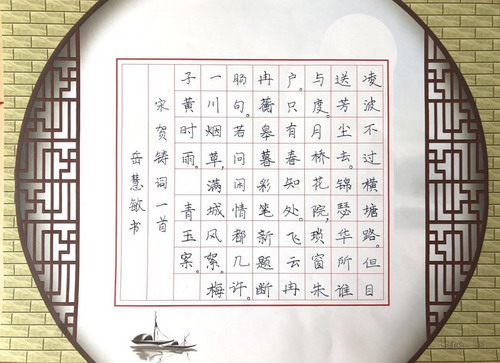 凌波不过横塘路。但目
送芳尘去。锦瑟华所谁
与度。月桥花院,琐窗朱
户。只有春知处。飞云冉
冉蘅皋暮彩笔新题断
肠句。若问闲情都几许。
一川烟草,满城风絮。梅
子黄时雨。青玉案。
宋贺铸词一首
岳慧敏书